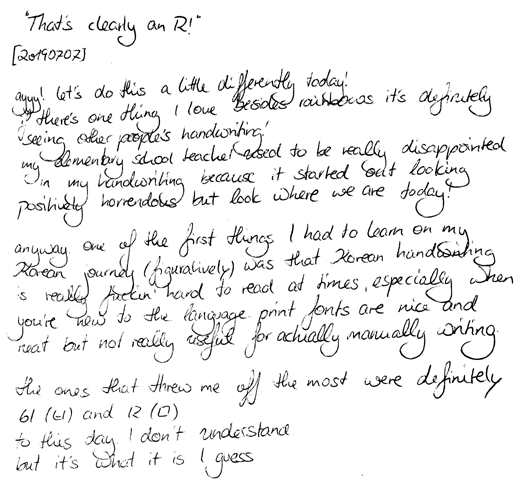 "That's clearly an R!"
[20190707]
ayyy! let's do this a little differently today!
if there's one thing I love besides rainbows it's definitely
seeing other people's handwriting!
my elementary school teacher used to be really disappointed
in my handwriting because it started out looking
positively horrendous but look where we are today!
anyway one of the first things I had to learn on my
Korean journey (figuratively) was that Korean handwriting
is really fuckin' hard to read at times, especially when
you're new to the language. print fonts are nice and
neat but not really useful for actually manually writing.
the ones that threw me off the most were definitely
61 (ㄹ) and 12 (ㅁ)
to this day I don't understand
but it's what it is I guess